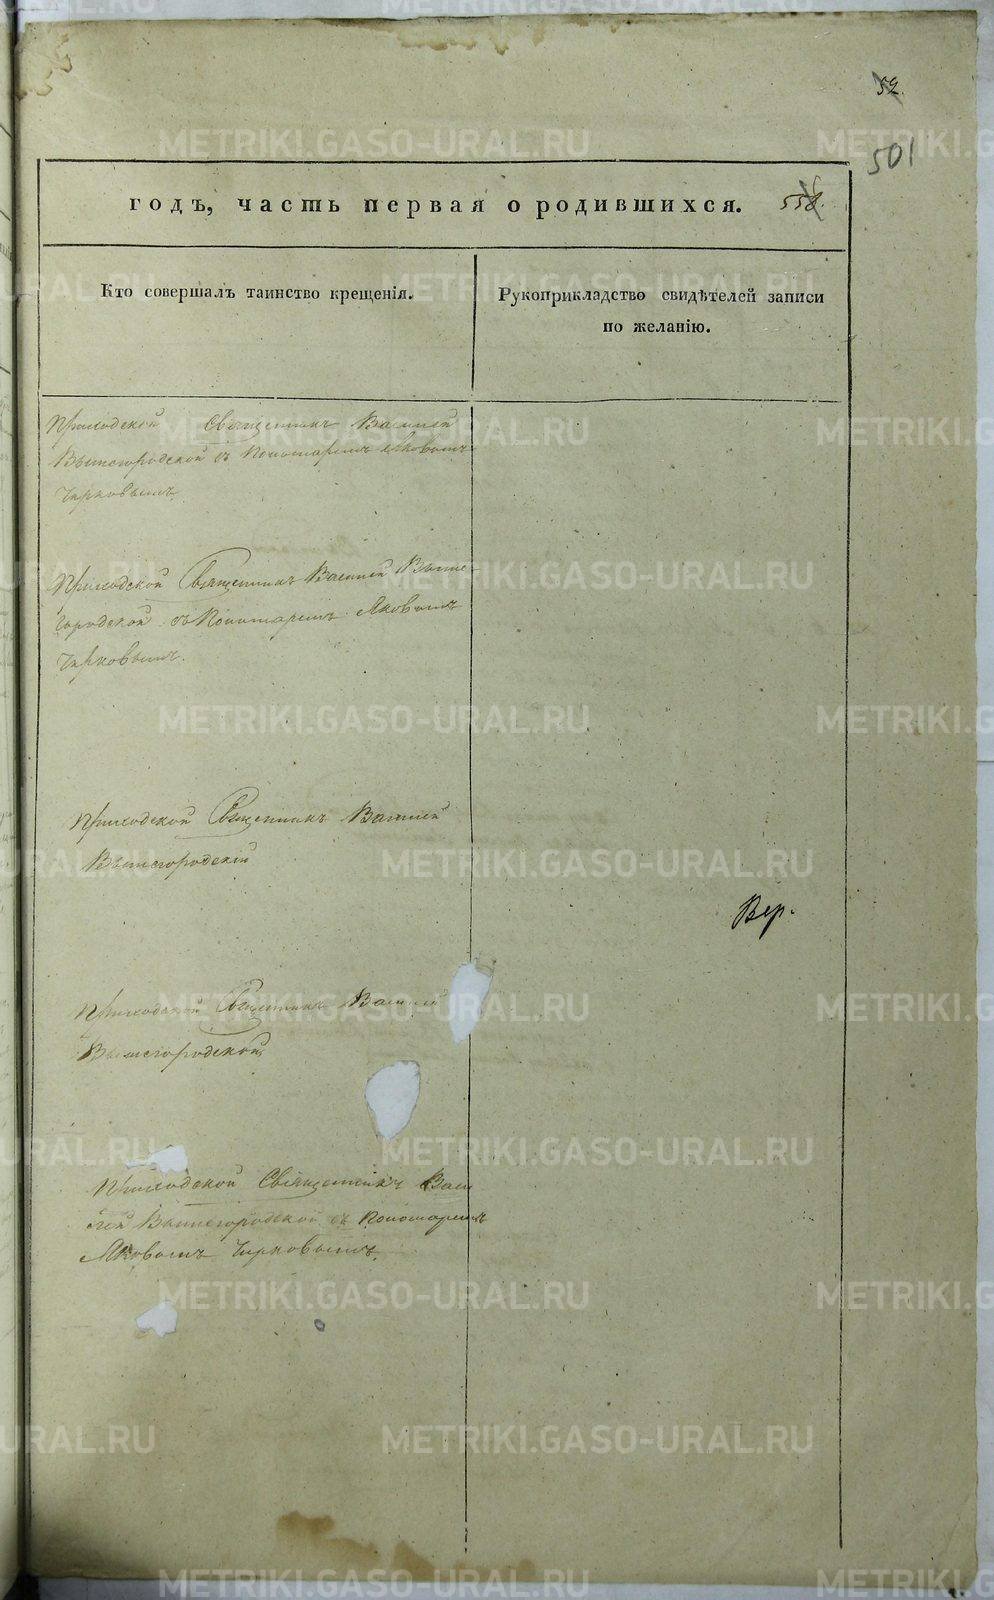 52.
501
годъ, часть первая о родившихся. 558.
Кто совершалъ таинство крещенія.
Рукоприкладство свидѣтелей записи
по желанію.
Приходской Священникъ Василей
Вышегородской съ Пономаремъ Яковомъ
Чирковымъ.
Приходской Священникъ Василей Выше-
городской съ Пономаремъ Яковомъ
Чирковымъ.
Приходской Священникъ Василей
Вышегородскій
Вер.
Приходской Священникъ Василей
Вышегородской
Приходской Священникъ Васи
лей Вышегородской съ Пономаремъ
Яковомъ Чирковымъ.
METRIKI.GASO-URAL.RU